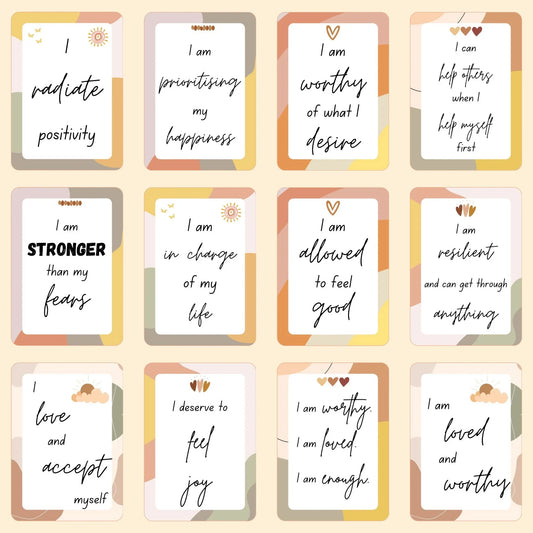 I
radiate
positivity
I am
prioritising
my
happiness
I am
worthy
of what I
desire
I can
help others
when I
help myself
first
I am
STRONGER
than my
fears
I am
in charge
of my
life
I am
allowed
to feel
good
I am
resilient
and can get through
anything
I
love
and
accept
myself
I deserve to
feel
joy
I am worthy.
I am loved.
I am enough.
I am
loved
and
worthy